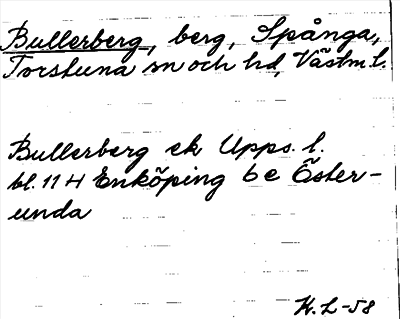 Bullerberg, berg, Spånga,
Torstuna sn och hd, Västm. l.
Bullerberg ek Upps. l.
bl. 11 H Enköping 6 e Öster-
unda
K. L -58